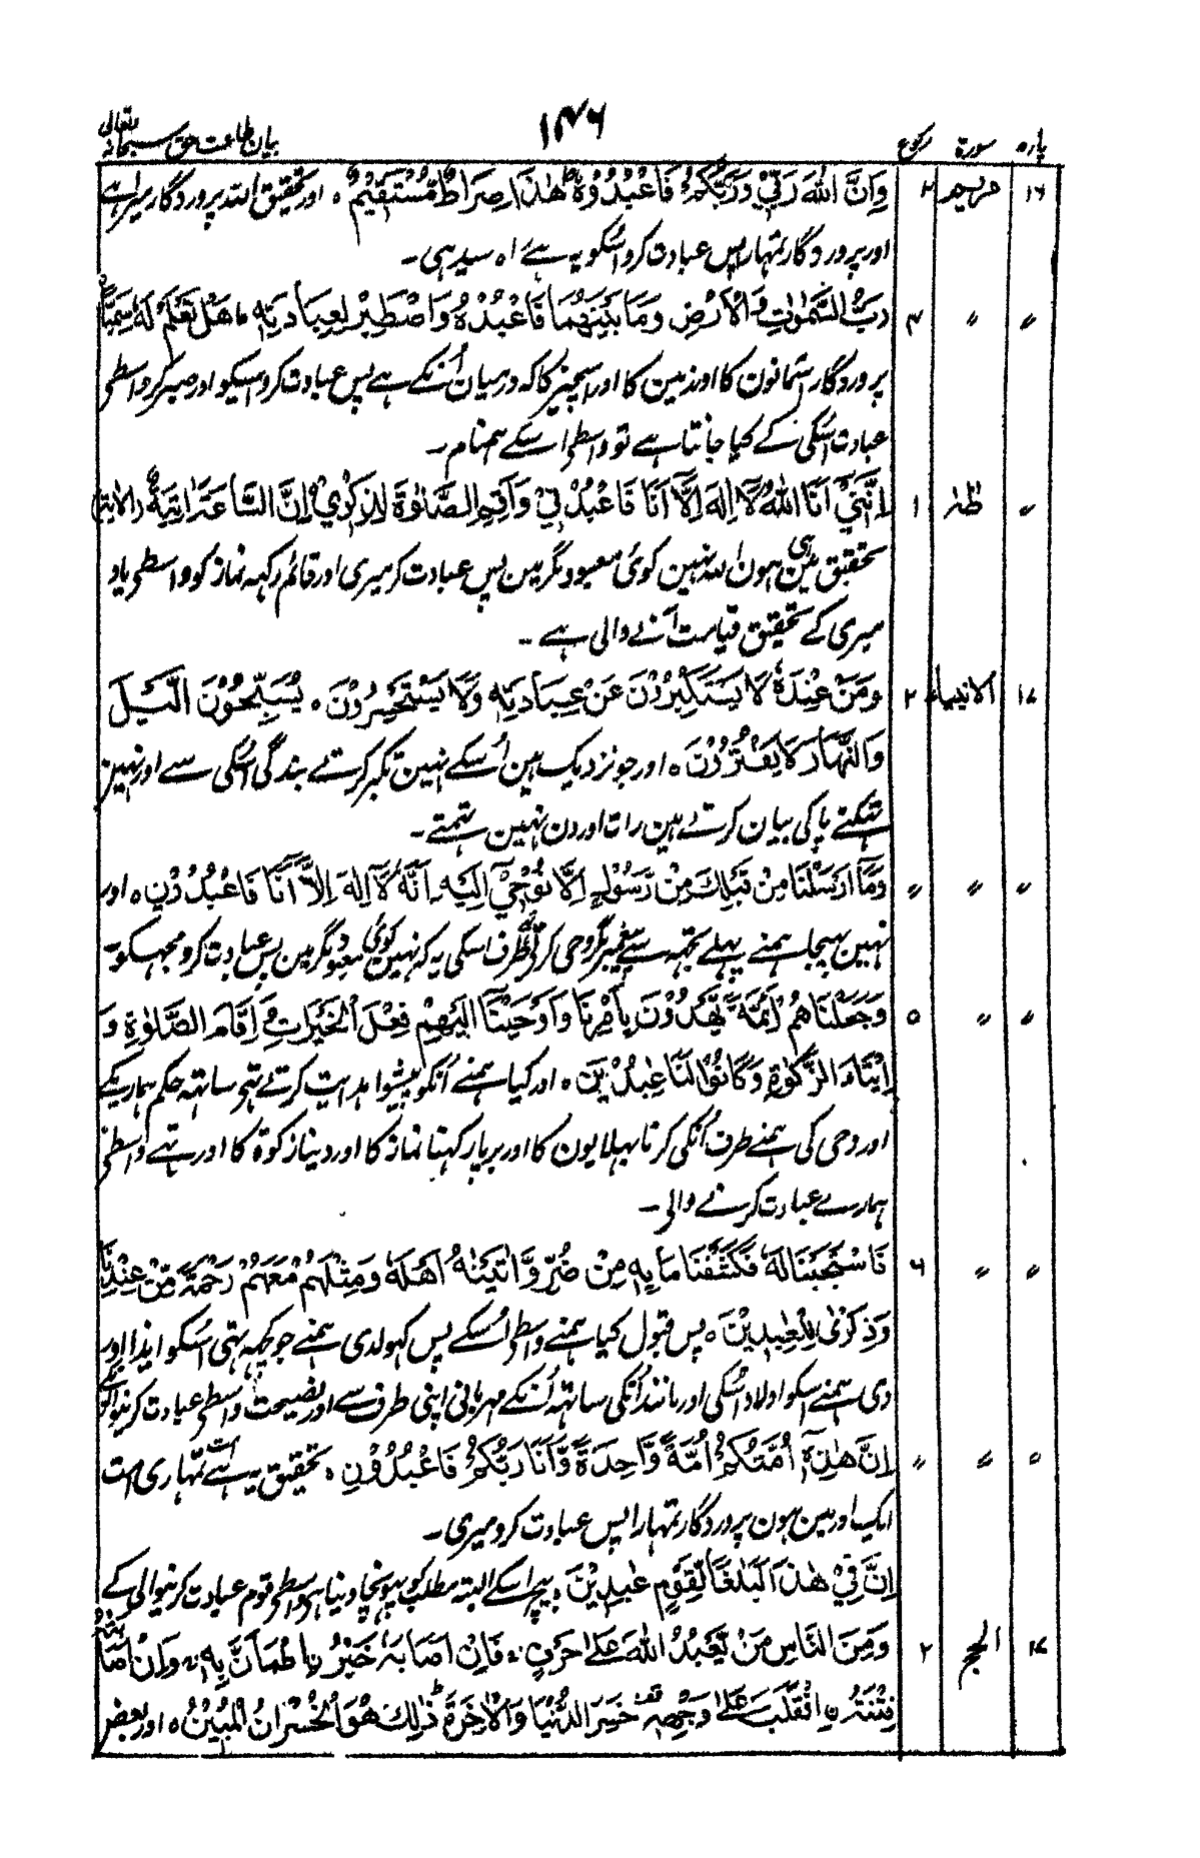 پارہ سورۃ رکوع ۱۴۶ بیان طاعت حق سبحانہ وتعالی
۱۶ مریم ۲ وَاِنَّ اللّٰهَ رَبِّيْ وَرَبُّكُمْ فَاعْبُدُوْهُ هٰذَا صِرَاطٌ مُّسْتَقِيْمٌ ہ اور تحقیق اللہ پروردگار میرا ہے
اور پروردگار تمہارا پس عبادت کرو اُسکو یہ ہے راہ سیدہی ۔
〃 〃 ۴ رَبُّ السَّمٰوٰتِ وَالْاَرْضِ وَمَا بَيْنَهُمَا فَاعْبُدْهُ وَاصْطَبِرْ لِعِبَادَتِهٖ ہ هَلْ تَعْلَمُ لَهٗ سَمِيًّا
پروردگار آسمانون کا اور زمین کا اور اسچیز کا کہ درمیان اُنکے ہے پس عبادت کرو اسیکو اور صبر کرو واسطی
عبادت اُسکی کے کیا جانتا ہے تو واسطی اسکے ہمنام ۔
〃 طٰہٰ ۱ اِنَّنِيْ اَنَا اللّٰهُ لَآ اِلٰهَ اِلَّآ اَنَا فَاعْبُدْنِيْ وَاَقِمِ الصَّلٰوةَ لِذِكْرِيْ اِنَّ السَّاعَةَ اٰتِيَةٌ (الایۃ)
تحقیق مین ہی ہون اللہ نہین کوئی معبود مگر مین پس عبادت کر میری اور قائم رکہہ نماز کو واسطی یاد
میری کے تحقیق قیامت آنے والی ہے ۔
۱۷ الانبیاء ۲ وَمَنْ عِنْدَهٗ لَا يَسْتَكْبِرُوْنَ عَنْ عِبَادَتِهٖ وَلَا يَسْتَحْسِرُوْنَ ہ يُسَبِّحُوْنَ الَّيْلَ
وَالنَّهَارَ لَا يَفْتُرُوْنَ ہ اور جو نزدیک ہین اُسکے نہین تکبر کرتے بندگی اُسکی سے اور نہین
تہکتے پاکی بیان کرتے ہین رات اور دن نہین تہمتے ۔
〃 〃 〃 وَمَآ اَرْسَلْنَا مِنْ قَبْلِكَ مِنْ رَّسُوْلٍ اِلَّا نُوْحِيْٓ اِلَيْهِ اَنَّهٗ لَآ اِلٰهَ اِلَّآ اَنَا فَاعْبُدُوْنِ ہ اور
نہین بہیجا ہمنے پہلے تجہہ سے پیغمبر مگر وحی کرتے تھے طرف اسکی یہ کہ نہین کوئی معبود مگر مین پس عبادت کرو مجہکو ۔
〃 〃 ۵ وَجَعَلْنَاهُمْ اَئِمَّةً يَّهْدُوْنَ بِاَمْرِنَا وَاَوْحَيْنَآ اِلَيْهِمْ فِعْلَ الْخَيْرَاتِ وَاِقَامَ الصَّلٰوةِ وَ
اِيْتَآءَ الزَّكٰوةِ وَكَانُوْا لَنَا عٰبِدِيْنَ ہ اور کیا ہمنے اُنکو پیشوا ہدایت کرتے تہے ساتہہ حکم ہمارے کے
اور وحی کی ہمنے طرف اُنکی کرنا بہلایون کا اور برپا رکہنا نماز کا اور دینا زکوۃ کا اور تہے واسطی
ہمارے عبادت کرنے والی ۔
〃 〃 ۶ فَاسْتَجَبْنَا لَهٗ فَكَشَفْنَا مَا بِهٖ مِنْ ضُرٍّ وَّاٰتَيْنٰهُ اَهْلَهٗ وَمِثْلَهُمْ مَّعَهُمْ رَحْمَةً مِّنْ عِنْدِنَا
وَذِكْرٰى لِلْعٰبِدِيْنَ ہ پس قبول کیا ہمنے واسطی اُسکے پس کہولدی ہمنے جو کچہہ تہی اسکو ایذا اور
دی ہمنے اسکو اولاد اُسکی اور مانند اُنکی ساتہہ اُنکے مہربانی اپنی طرف سے اور نصیحت واسطی عبادت کرنیوالونکے
〃 〃 〃 اِنَّ هٰذِهٖٓ اُمَّتُكُمْ اُمَّةً وَّاحِدَةً وَّاَنَا رَبُّكُمْ فَاعْبُدُوْنِ ہ تحقیق یہ ہے تمہاری امت
ایک اور مین ہون پروردگار تمہارا پس عبادت کرو میری ۔
اِنَّ فِيْ هٰذَا لَبَلٰغًا لِّقَوْمٍ عٰبِدِيْنَ ہ بیچ اسکے البتہ مطلب کو پہونچا دینا ہے واسطی قوم عبادت کرنیوالی کے
۱۷ الحج ۲ وَمِنَ النَّاسِ مَنْ يَّعْبُدُ اللّٰهَ عَلٰى حَرْفٍ ۚ فَاِنْ اَصَابَهٗ خَيْرُ نِ اطْمَاَنَّ بِهٖ ۚ وَاِنْ اَصَابَتْهُ
فِتْنَةُ نِ انْقَلَبَ عَلٰى وَجْهِهٖ خَسِرَ الدُّنْيَا وَالْاٰخِرَةَ ذٰلِكَ هُوَ الْخُسْرَانُ الْمُبِيْنُ ہ اور بعض